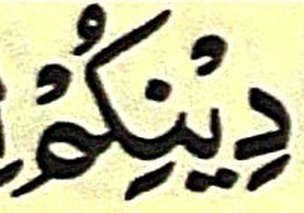 دِيْنِكُمْ